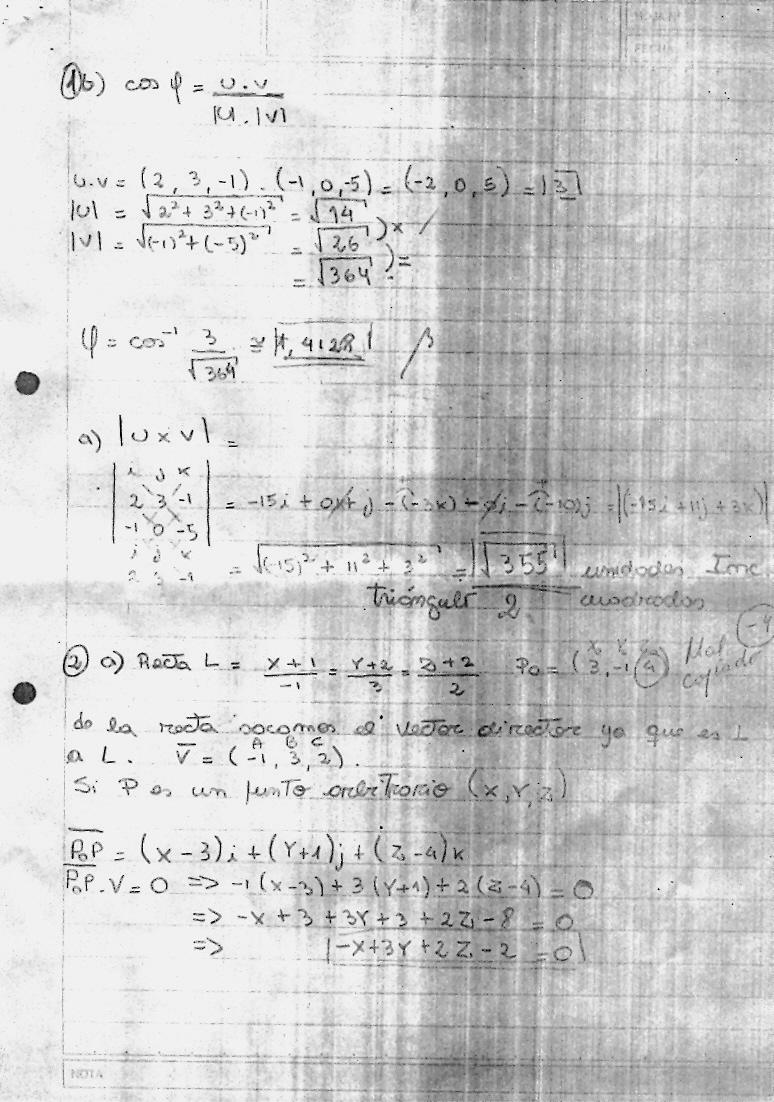 ①b) cos φ = u.v / |u|.|v|
u.v = (2, 3, -1) . (-1, 0, -5) = (-2, 0, 5) = |3|
|u| = √(2² + 3² + (-1)²) = √14
|v| = √((-1)² + (-5)²) = √26 ) x
= √364 ) =
φ = cos⁻¹ 3/√364 ≅ 1,4128
a) |u x v| =
i j k
2 3 -1
-1 0 -5
i j k
2 3 -1
= -15i + 0k + j - (-3k) - 0i - (-10)j = |(-15i + 11j + 3k)|
= √((-15)² + 11² + 3²) = √355 unidades Inc.
triángulo 2 cuadradas
-4
② a) Recta L = x+1/-1 = y+2/3 = z+2/2 P₀ = (3, -1, 4) Mal
x y z
copiado
de la recta sacamos el vector director ya que es ⊥
a L. V = (-1, 3, 2).
A B C
Si P es un punto arbitrario (x, y, z)
P₀P = (x-3)i + (y+1)j + (z-4)k
P₀P.V = 0 => -1(x-3) + 3(y+1) + 2(z-4) = 0
=> -x + 3 + 3y + 3 + 2z - 8 = 0
=> -x + 3y + 2z - 2 = 0
NOTA